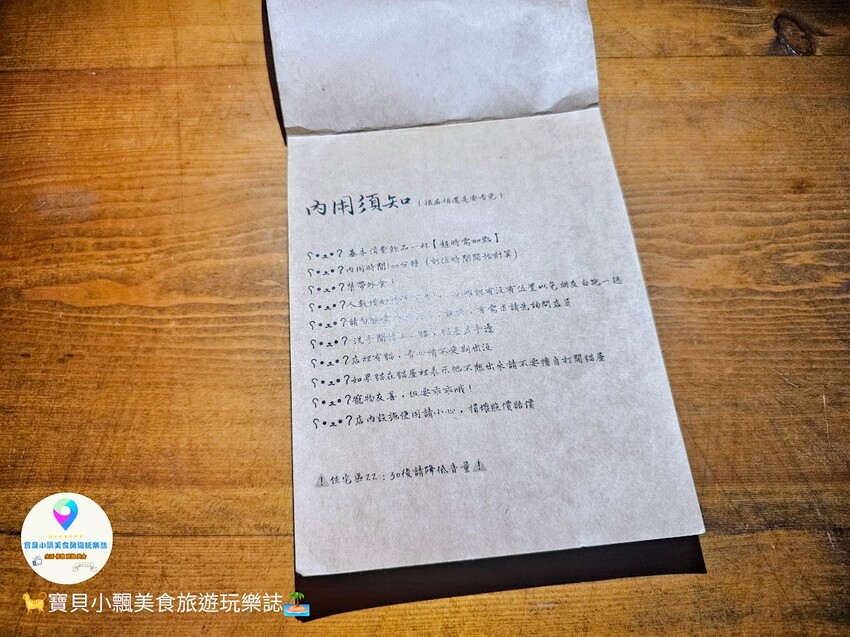 內用須知(很麻煩還是要看完)
ʕ•ﻌ•ʔ基本消費飲品一杯【超時需加點】
ʕ•ﻌ•ʔ內用時間100分鐘(訂位時間開始計算)
ʕ•ﻌ•ʔ禁帶外食!
ʕ•ﻌ•ʔ人數增 有沒有位置以免朋友白跑一趟
ʕ•ﻌ•ʔ請勿 有需求請先詢問店員
ʕ•ﻌ•ʔ洗手間請上 樓,
ʕ•ﻌ•ʔ店裡有貓,看心情不定期出沒
ʕ•ﻌ•ʔ如果貓在貓屋裡表示牠不想出來請不要擅自打開貓屋
ʕ•ﻌ•ʔ寵物友善,但要乖乖哦!
ʕ•ﻌ•ʔ店內設施使用請小心,損壞照價賠償
⚠住宅區22:30後請降低音量⚠
寶貝小飄美食旅遊玩樂誌
寶貝小飄美食旅遊玩樂誌